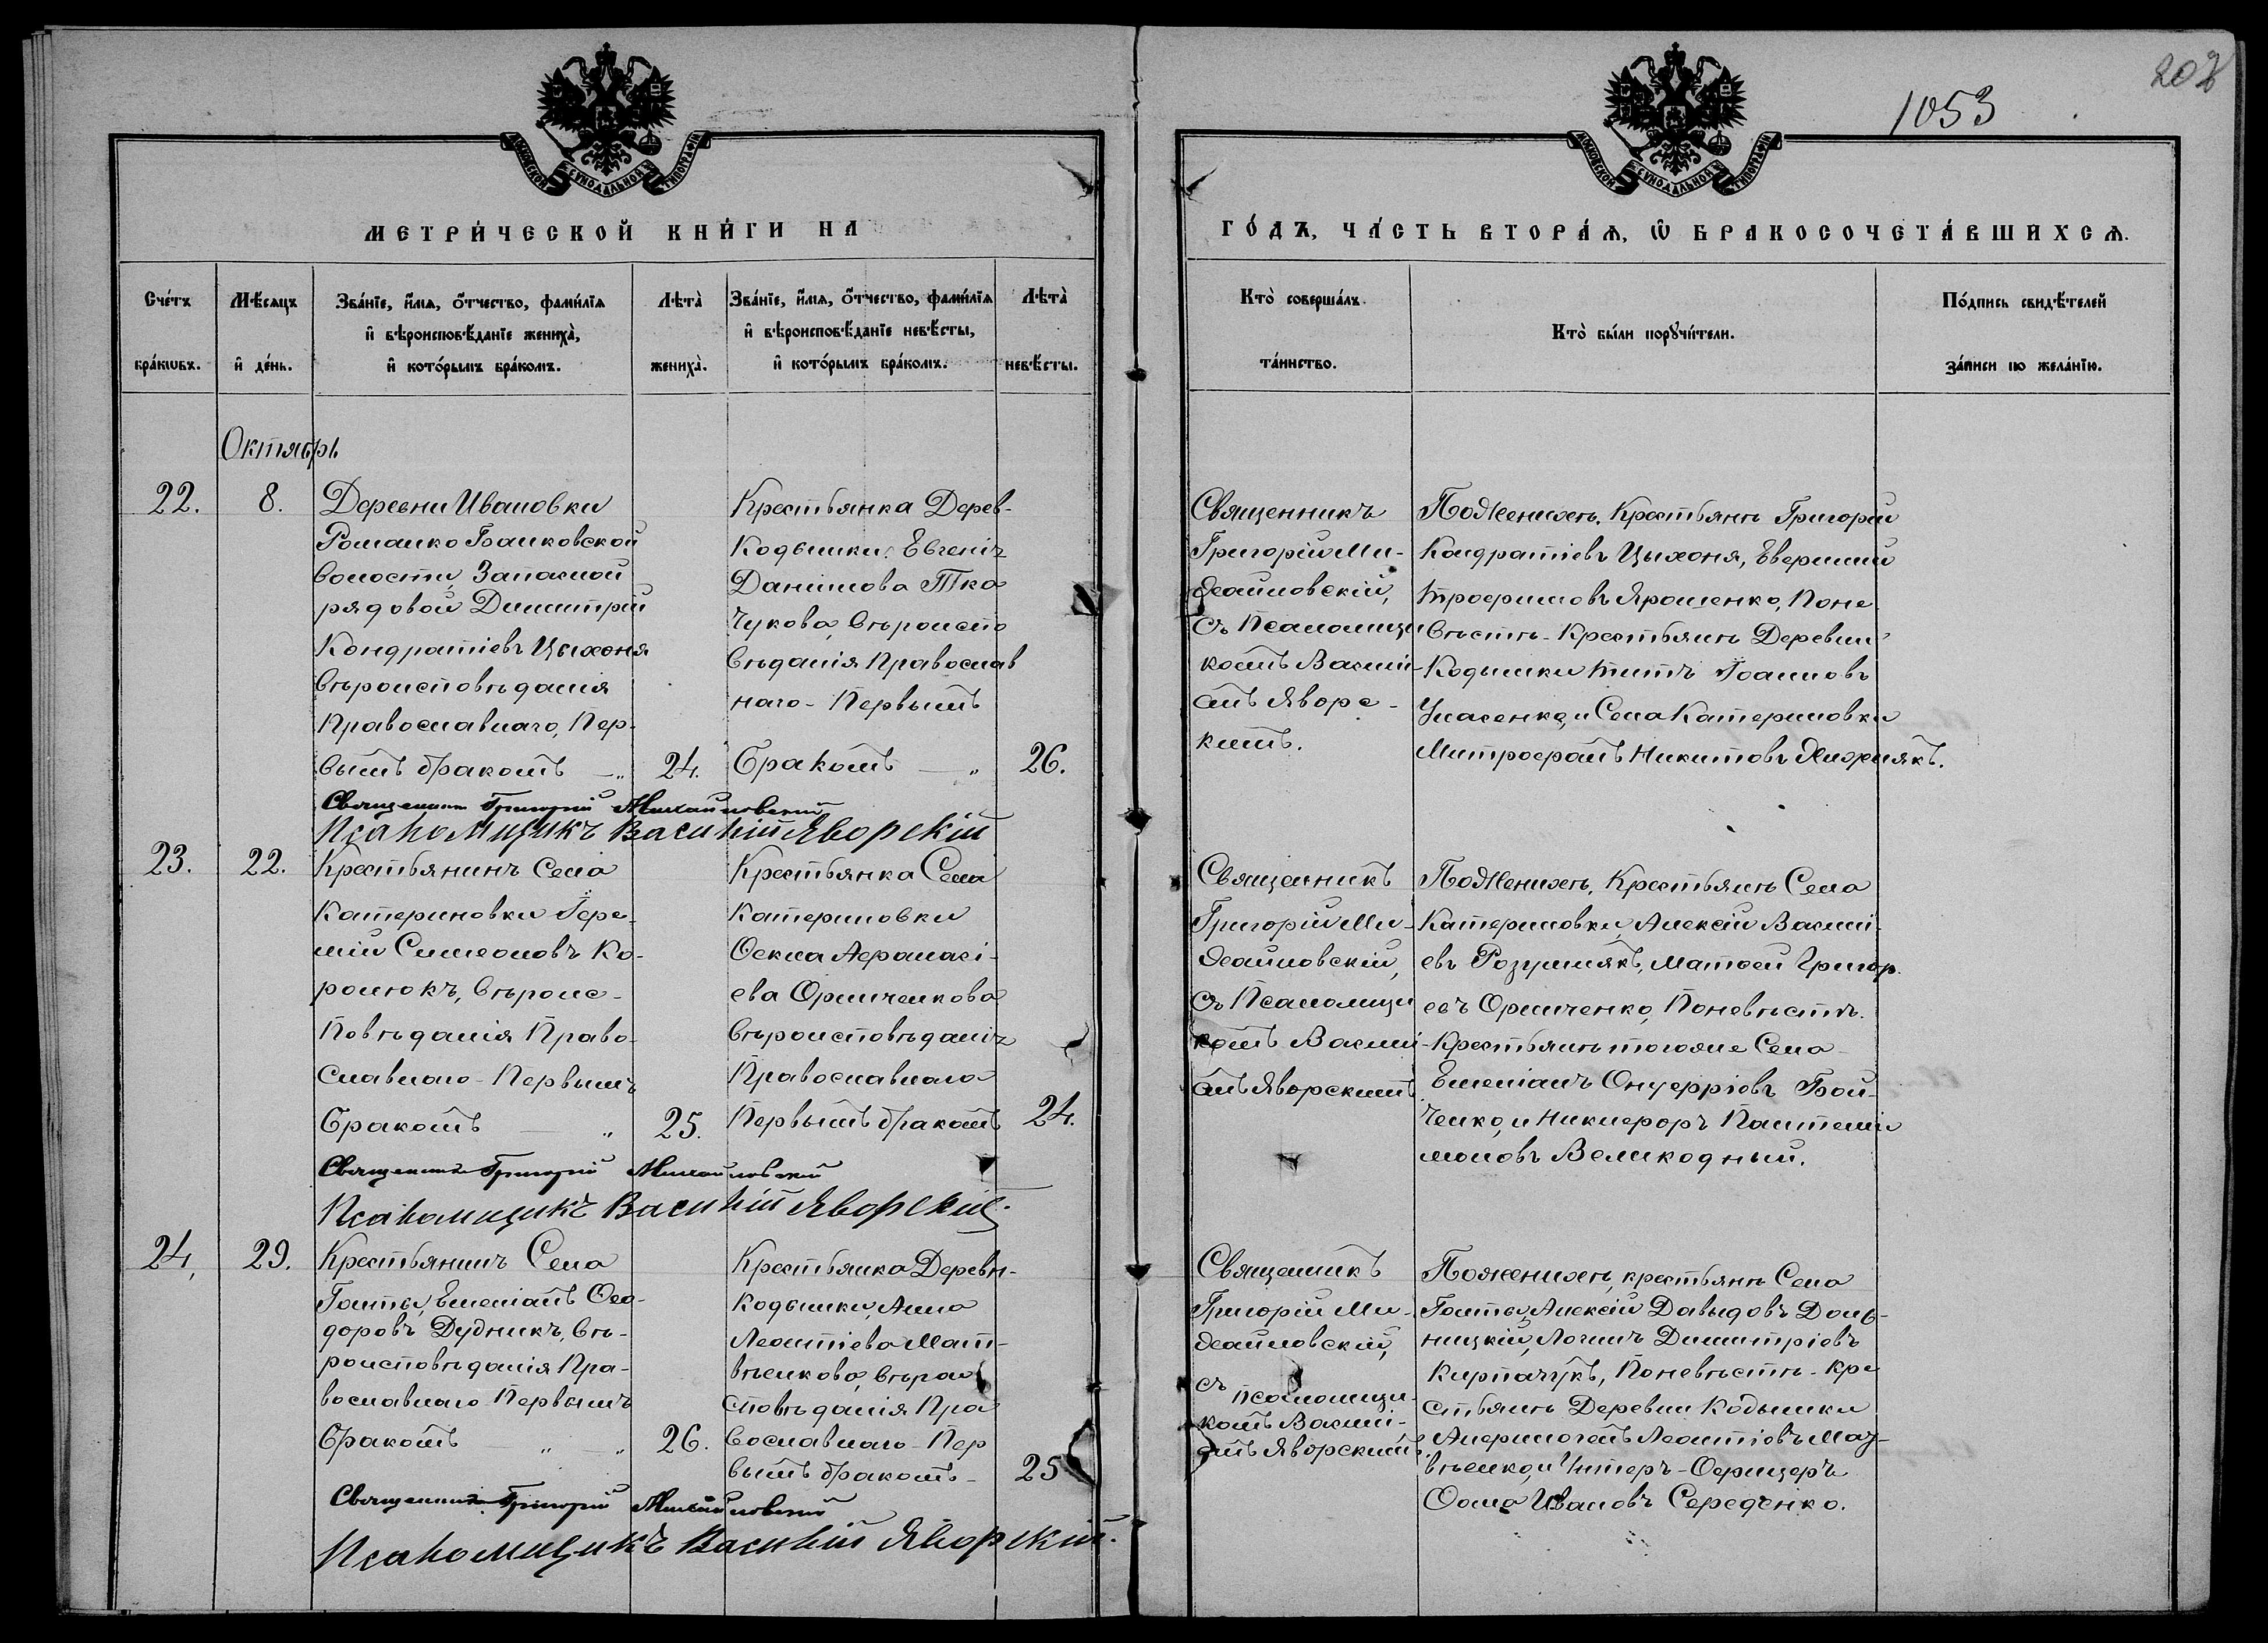 1053
208
МОСКОВСКОЙ СѴНОДАЛЬНОЙ ТИПОГРАФІИ
МОСКОВСКОЙ СѴНОДАЛЬНОЙ ТИПОГРАФІИ
МЕТРИ́ЧЕСКОЙ КНИ́ГИ НА
ГО́ДЪ, ЧА́СТЬ ВТОРА́Ѧ, Ѽ БРАКОСОЧЕТА́ВШИХСѦ.
Сче́тъ бра́кѡвъ.
Мѣ́сяцъ и҆ де́нь.
Зва́нїе, и҆́мя, ѻ҆́тчество, фами́лїя
и҆ вѣроисповѣ́данїе жениха̀,
и҆ кото́рымъ бра́комъ.
Лѣта̀ жениха̀.
Зва́нїе, и҆́мя, ѻ҆́тчество, фами́лїя
и҆ вѣроисповѣ́данїе невѣ́сты,
и҆ кото́рымъ бра́комъ.
Лѣта̀ невѣ́сты.
Кто̀ соверша́лъ та́инство.
Кто̀ бы́ли порꙋчи́тели.
По́дпись свидѣ́телей за́писи по жела́нїю.
Октябрь
22.
8.
Деревни Ивановки
Романко Банковской
волости, Запасной
рядовой Димитрій
Кондратіевъ Цыхоня
вѣроисповѣданія
Православнаго, Пер-
вымъ бракомъ —„
24.
Крестьянка Дерев-
Кодымки, Евгенія
Даніилова Тка
чукова, вѣроиспо
вѣданія Православ
наго - Первымъ
бракомъ —„
26.
Священникъ
Григорій Ми-
хайловскій,
съ Псаломщи
комъ Васині-
емъ Яворс-
кимъ.
По Женихѣ, Крестьянѣ Григорій
Кондратіевъ Цыхоня,
Трофимовъ Ярошенко, По не
вѣстѣ - Крестьянѣ Деревни
Кодымки Титъ Іоанновъ
и Села Катериновки
Митрофанъ Никитовъ
Священникъ Григорій Михайловскій
Псаломщикъ Василій Яворскій
23.
22.
Крестьянинъ Села
Катериновки Іере-
мій Симеоновъ Ко-
ролюкъ, вѣроис-
повѣданія Право-
славнаго - Первымъ
бракомъ — „
25.
Крестьянка Села
Катериновки
Ѳекла Афанасі-
ева Ориченкова
вѣроисповѣданія
Православнаго
Первымъ бракомъ
24.
Священникъ
Григорій Ми-
хайловскій,
съ Псаломщи
комъ Василі-
емъ Яворскимъ
По Женихѣ, Крестьянѣ Села
Катериновки, Алексій Василі-
евъ Розумнякъ, Матѳей Григор-
евъ Ориченко, По невѣстѣ.
- Крестьянѣ того же Села -
Емеліанъ Онуфріевъ Бой-
ченко, и Никифоръ Пантелій
моновъ Великодный.
Священникъ Григорій Михайловскій
Псаломщикъ Василій Яворскій.
24,
29.
Крестьянинъ Села
Голты, Емеліанъ Ѳео-
доровъ Дудникъ, вѣ-
роисповѣданія Пра-
вославнаго Первымъ
бракомъ — „ — „
26.
Крестьянка Деревн-
Кодымки, Анна
Леонтіева Мат-
вѣенкова, вѣрои
сповѣданія Пра
вославнаго - Пер
вымъ бракомъ -
25
Священникъ
Григорій Ми-
хайловскій,
съ псаломщи-
комъ Василі-
емъ Яворскимъ
По женихѣ, крестьянѣ Села
Голты, Алексій Давыдовъ Доль-
ницкій, Логинъ Димитріевъ
Кирпачукъ, По невѣстѣ - Кре
стьянѣ Деревни Кодымки
Леонтіевъ Мат-
вѣенко, и Унтеръ-Офицеръ
Ѳома Ивановъ Середенко.
Священникъ Григорій Михайловскій
Псаломщикъ Василій Яворскій.